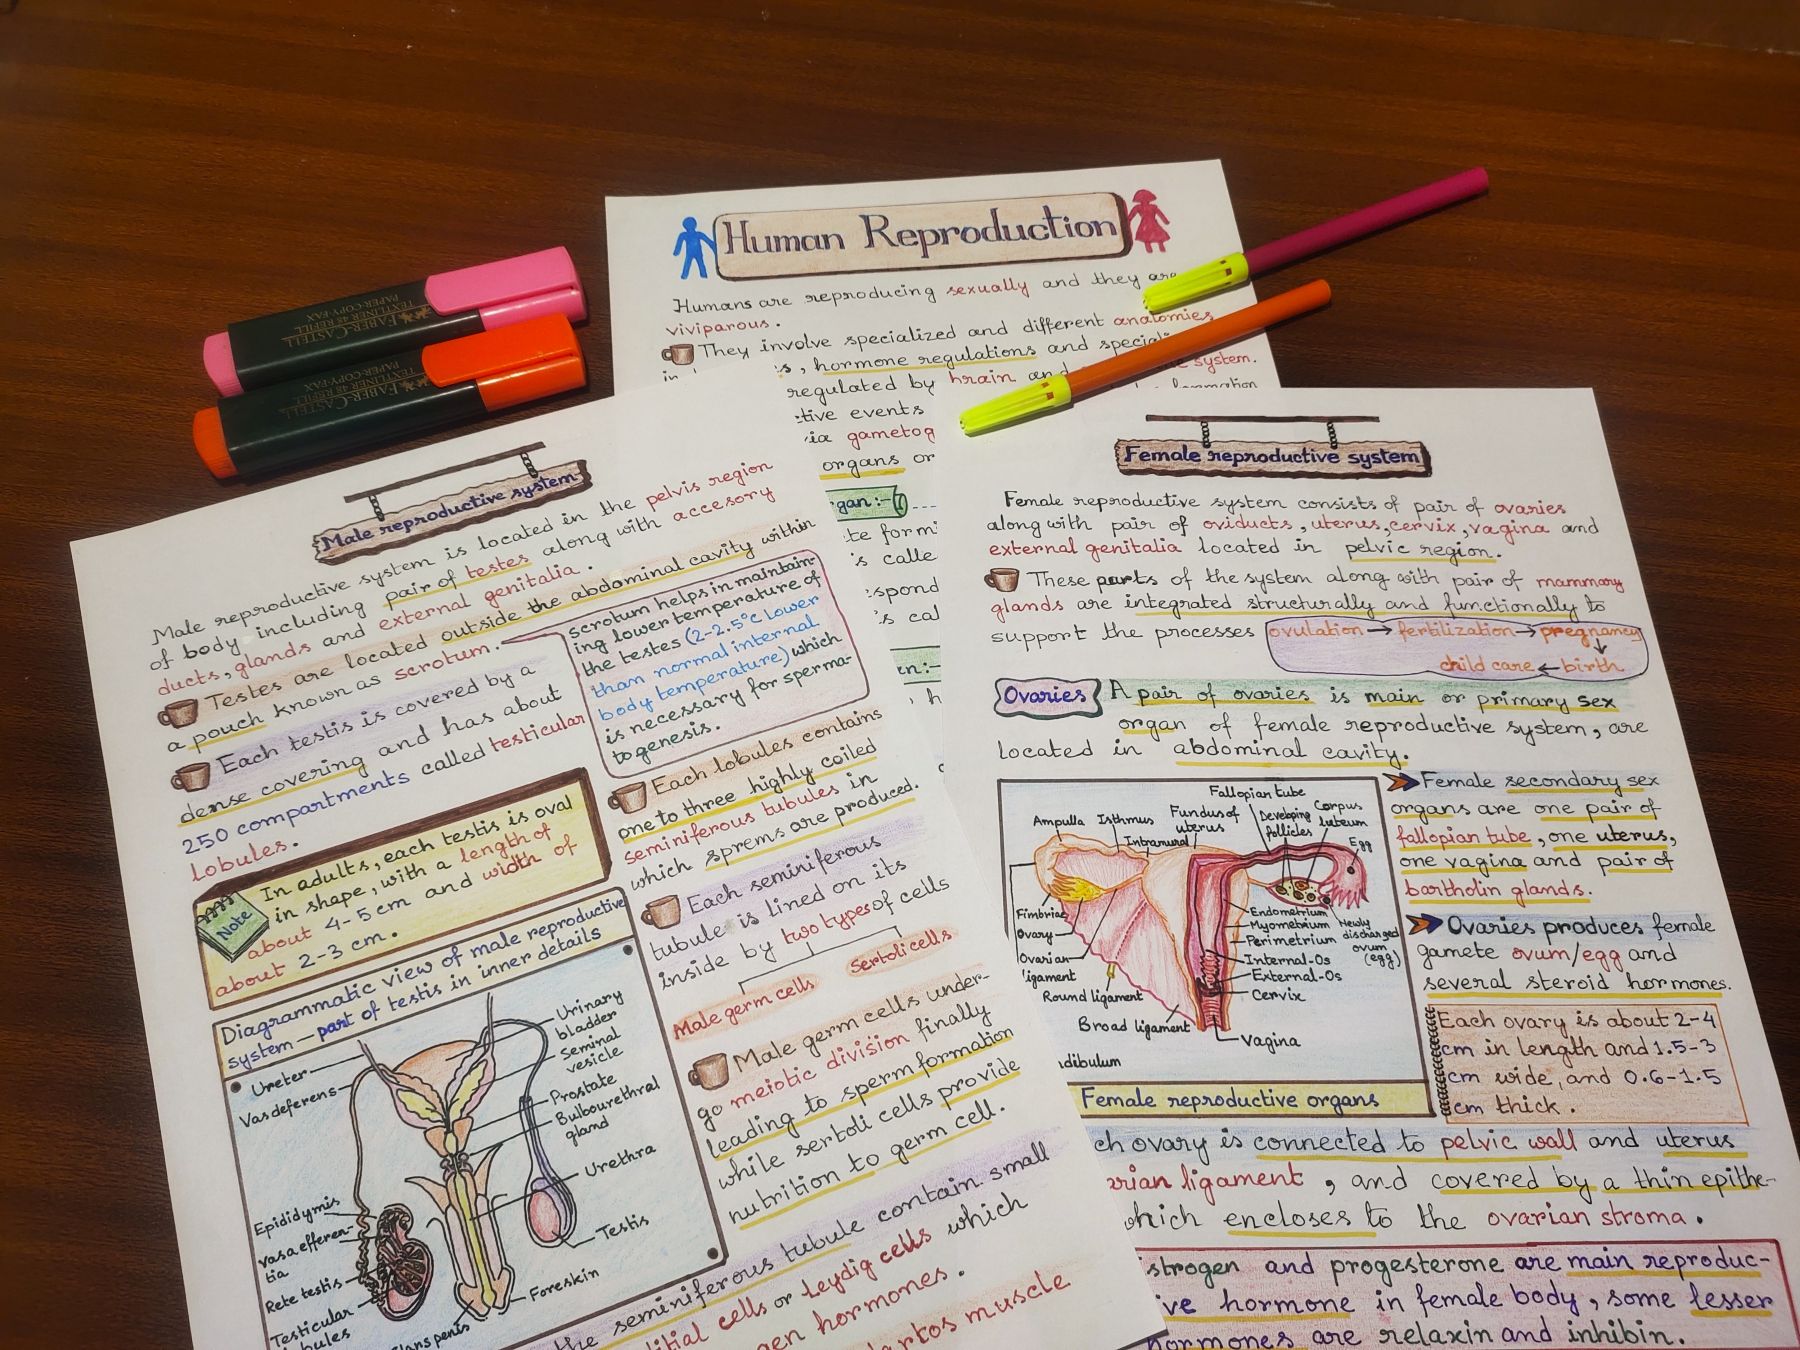 Human Reproduction
Humans are reproducing sexually and they are
viviparous.
They involve specialized and different anatomies
, hormone regulations and speciali
regulated by brain and system.
tive events formation
ia gametog
organs or
gan:-
te formi
's calle
espond
's cal
en:-
, h
FABER-CASTELL
TEXTLINER 48 REFILL
PAPER-COPY-FAX
FABER-CASTELL
TEXTLINER 48 REFILL
PAPER-COPY-FAX
Male reproductive system
Male reproductive system is located in the pelvis region
of body including pair of testes along with accesory
ducts, glands and external genitalia.
Testes are located outside the abdominal cavity within
a pouch known as scrotum.
scrotum helps in maintain-
ing lower temperature of
the testes (2-2.5°c lower
than normal internal
body temperature) which
is necessary for sperma-
togenesis.
Each testis is covered by a
dense covering and has about
250 compartments called testicular
lobules.
Note
In adults, each testis is oval
in shape, with a length of
about 4-5 cm and width of
about 2-3 cm.
Diagrammatic view of male reproductive
system – part of testis in inner details
Ureter
Vas deferens
Epididymis
vasa efferen-
tia
Rete testis
Testicular
lobules
Glans penis
Urinary
bladder
Seminal
vesicle
Prostate
Bulbourethral
gland
Urethra
Testis
Foreskin
Each lobules contains
one to three highly coiled
seminiferous tubules in
which sprems are produced.
Each seminiferous
tubule is lined on its
inside by two types of cells
Male germ cells
Sertoli cells
Male germ cells under-
go meiotic division finally
leading to sperm formation
while sertoli cells provide
nutrition to germ cell.
the seminiferous tubule contain small
titial cells or leydig cells which
gen hormones.
dartos muscle
Female reproductive system
Female reproductive system consists of pair of ovaries
along with pair of oviducts, uterus, cervix, vagina and
external genitalia located in pelvic region.
These parts of the system along with pair of mammary
glands are integrated structurally and functionally to
support the processes ovulation → fertilization → pregnancy
↓
child care ← birth
Ovaries A pair of ovaries is main or primary sex
organ of female reproductive system, are
located in abdominal cavity.
Fallopian tube
Ampulla
Isthmus
Intramural
Fundus of
uterus
Developing
follicles
Corpus
luteum
Egg
Fimbriae
Ovary
Ovarian
ligament
Round ligament
Broad ligament
Endometrium
Myometrium
Perimetrium
Internal-Os
External-Os
Cervix
Vagina
Newly
discharged
ovum
(egg)
ndibulum
Female reproductive organs
Female secondary sex
organs are one pair of
fallopian tube, one uterus,
one vagina and pair of
bartholin glands.
Ovaries produces female
gamete ovum/egg and
several steroid hormones.
Each ovary is about 2-4
cm in length and 1.5-3
cm wide, and 0.6-1.5
cm thick.
ch ovary is connected to pelvic wall and uterus
arian ligament, and covered by a thin epithe-
which encloses to the ovarian stroma.
strogen and progesterone are main reproduc-
ive hormone in female body, some lesser
hormones are relaxin and inhibin.